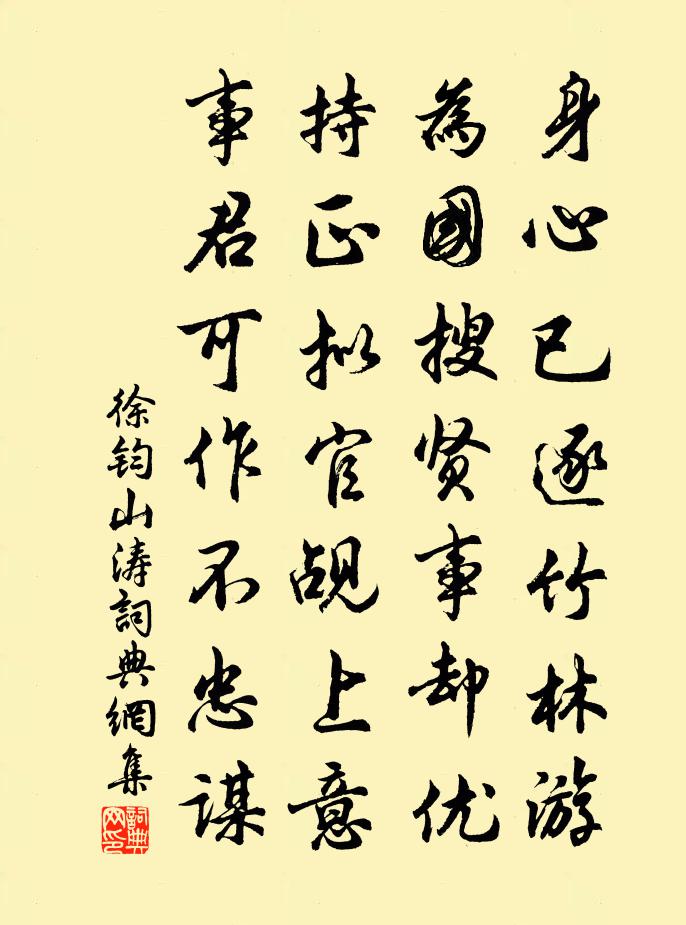 身心已逐竹林游
為國搜贤事却优
持正拟官觇上意
事君可作不忠谋
徐钧山涛詞典網集
詞典网印